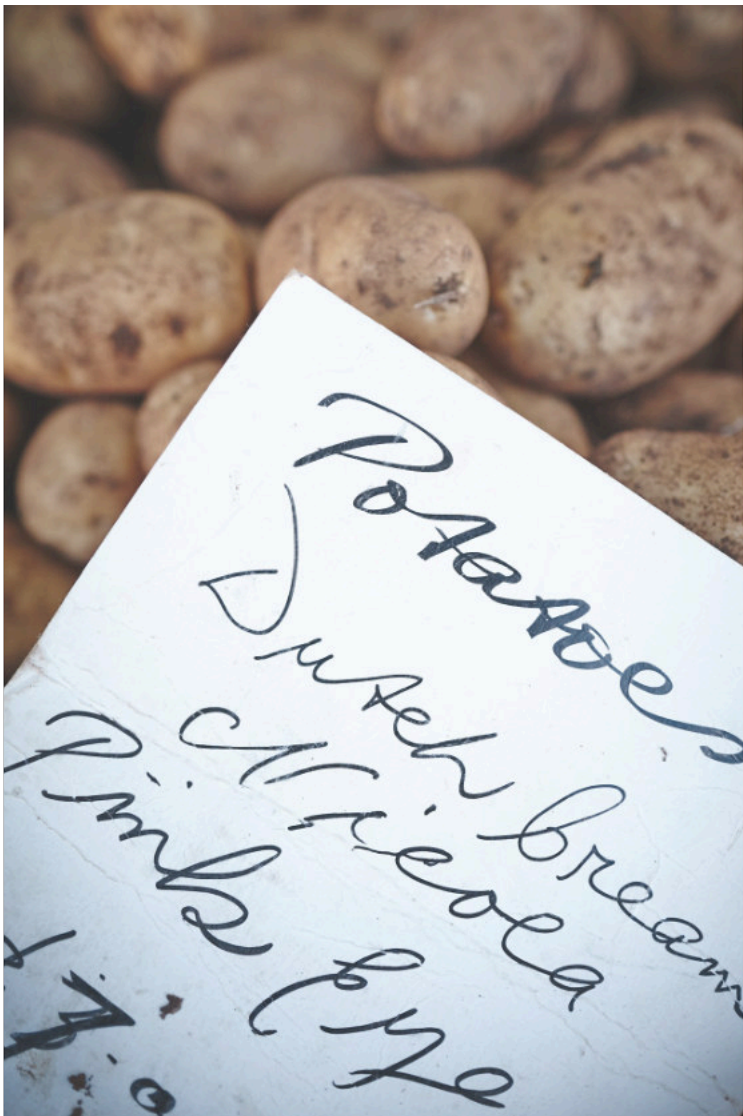 Potatoes
Dutch Cream
Nicola
Pink Eye